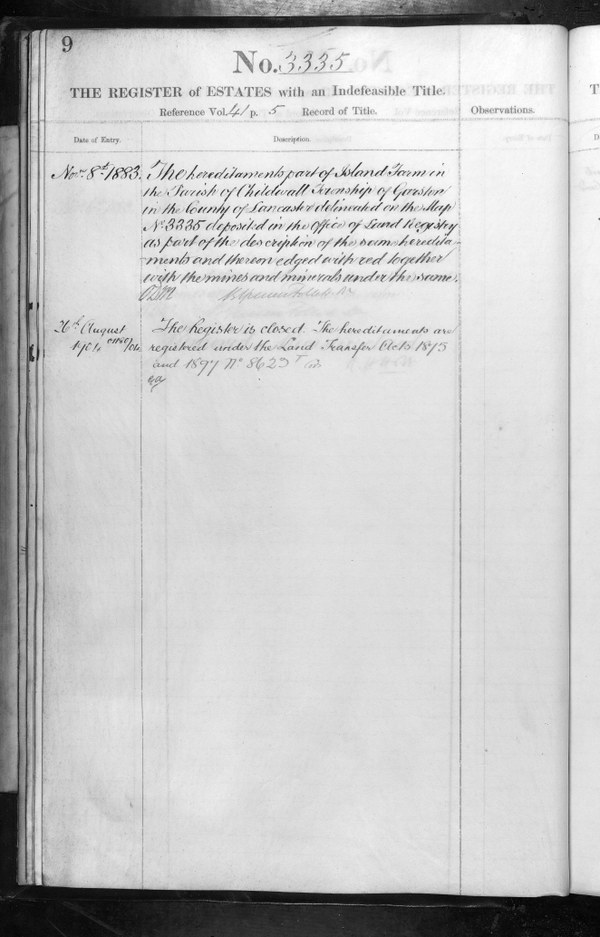 9
No. 3335
THE REGISTER of ESTATES with an Indefeasible Title.
Reference Vol. 41 p. 5 Record of Title. Observations.
Date of Entry. Description.
Novr. 8th 1883. The hereditaments part of Island Farm in
the Parish of Childwall Township of Garston
in the County of Lancaster delineated on the Map
No 3335 deposited in the Office of Land Registry
as part of the description of the same heredita-
ments and thereon edged with red together
with the mines and minerals under the same.
26th August The Register is closed. The hereditaments are
1904 registered under the Land Transfer Acts 1875
and 1897 No 8623